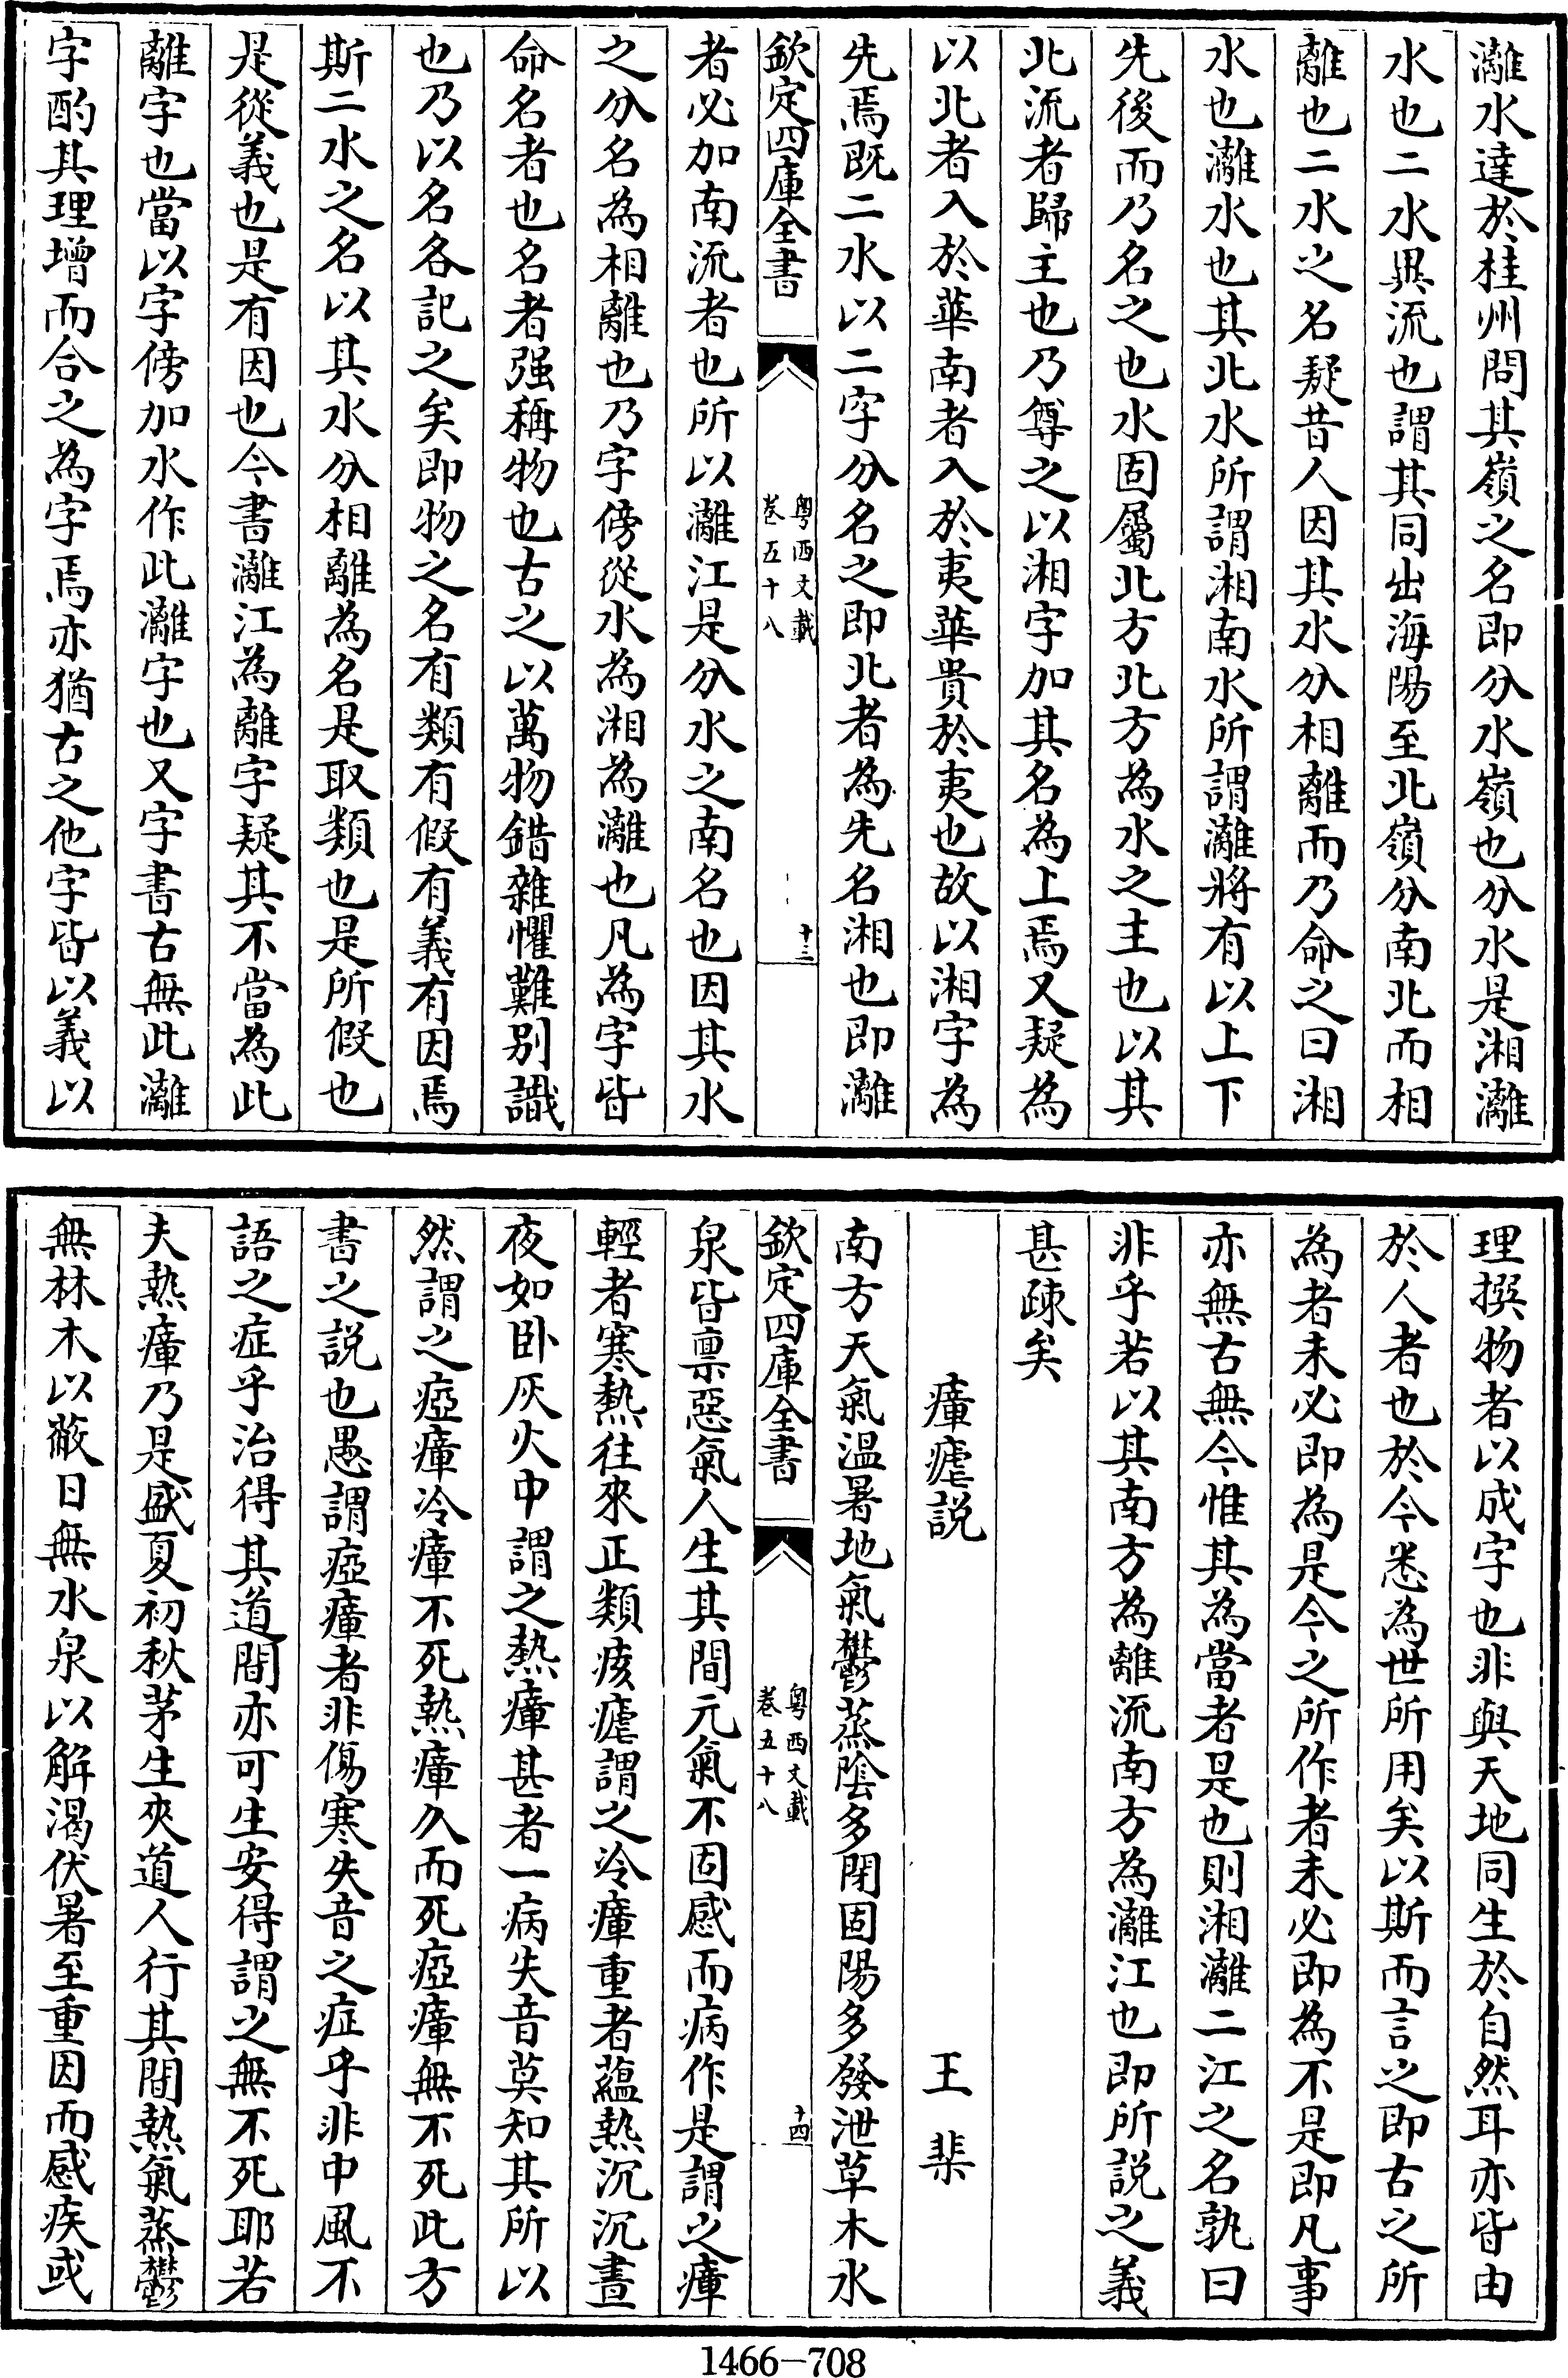 灕水達於桂州問其嶺之名即分水嶺也分水是湘灕
水也二水異流也謂其同出海陽至北嶺分南北而相
離也二水之名疑昔人因其水分相離而乃命之曰湘
水也灕水也其北水所謂湘南水所謂灕將有以上下
先後而乃名之也水固屬北方北方為水之主也以其
北流者歸主也乃尊之以湘字加其名為上焉又疑為
以北者入於華南者入於夷華貴於夷也故以湘字為
先焉既二水以二字分名之即北者為先名湘也即灕
欽定四庫全書
粤西文載
卷五十八
十三
者必加南流者也所以灕江是分水之南名也因其水
之分名為相離也乃字傍從水為湘為灕也凡為字皆
命名者也名者强稱物也古之以萬物錯雜懼難別識
也乃以名各記之矣即物之名有類有假有義有因焉
斯二水之名以其水分相離為名是取類也是所假也
是從義也是有因也今書灕江為離字疑其不當為此
離字也當以字傍加水作此灕字也又字書古無此灕
字酌其理增而合之為字焉亦猶古之他字皆以義以
理撰物者以成字也非與天地同生於自然耳亦皆由
於人者也於今悉為世所用矣以斯而言之即古之所
為者未必即為是今之所作者未必即為不是即凡事
亦無古無今惟其為當者是也則湘灕二江之名孰曰
非乎若以其南方為離流南方為灕江也即所説之義
甚疎矣
瘴瘧説
王棐
南方天氣溫暑地氣鬱蒸陰多閉固陽多發泄草木水
欽定四庫全書
粤西文載
卷五十八
十四
泉皆禀惡氣人生其間元氣不固感而病作是謂之瘴
輕者寒熱往來正類痎瘧謂之冷瘴重者蘊熱沉沉晝
夜如卧灰火中謂之熱瘴甚者一病失音莫知其所以
然謂之瘂瘴冷瘴不死熱瘴久而死瘂瘴無不死此方
書之説也愚謂瘂瘴者非傷寒失音之症乎非中風不
語之症乎治得其道間亦可生安得謂之無不死耶若
夫熱瘴乃是盛夏初秋茅生夾道人行其間熱氣蒸鬱
無林木以蔽日無水泉以解渴伏暑至重因而感疾或
1466-708